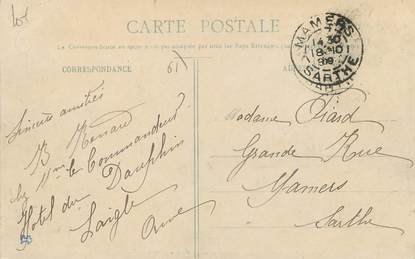 lot
CARTE POSTALE
La Correspondance au recto n'est pas acceptée par tous les Pays Étrangers
CORRESPONDANCE
61
MAMERS
14 30
18-10
09
SARTHE
Sincères amitiés
B Renard
chez Mme le Commandeur
Hotel du Dauphin
Laigle
Orne
Madame Piard
Grande Rue
Mamers
Sarthe